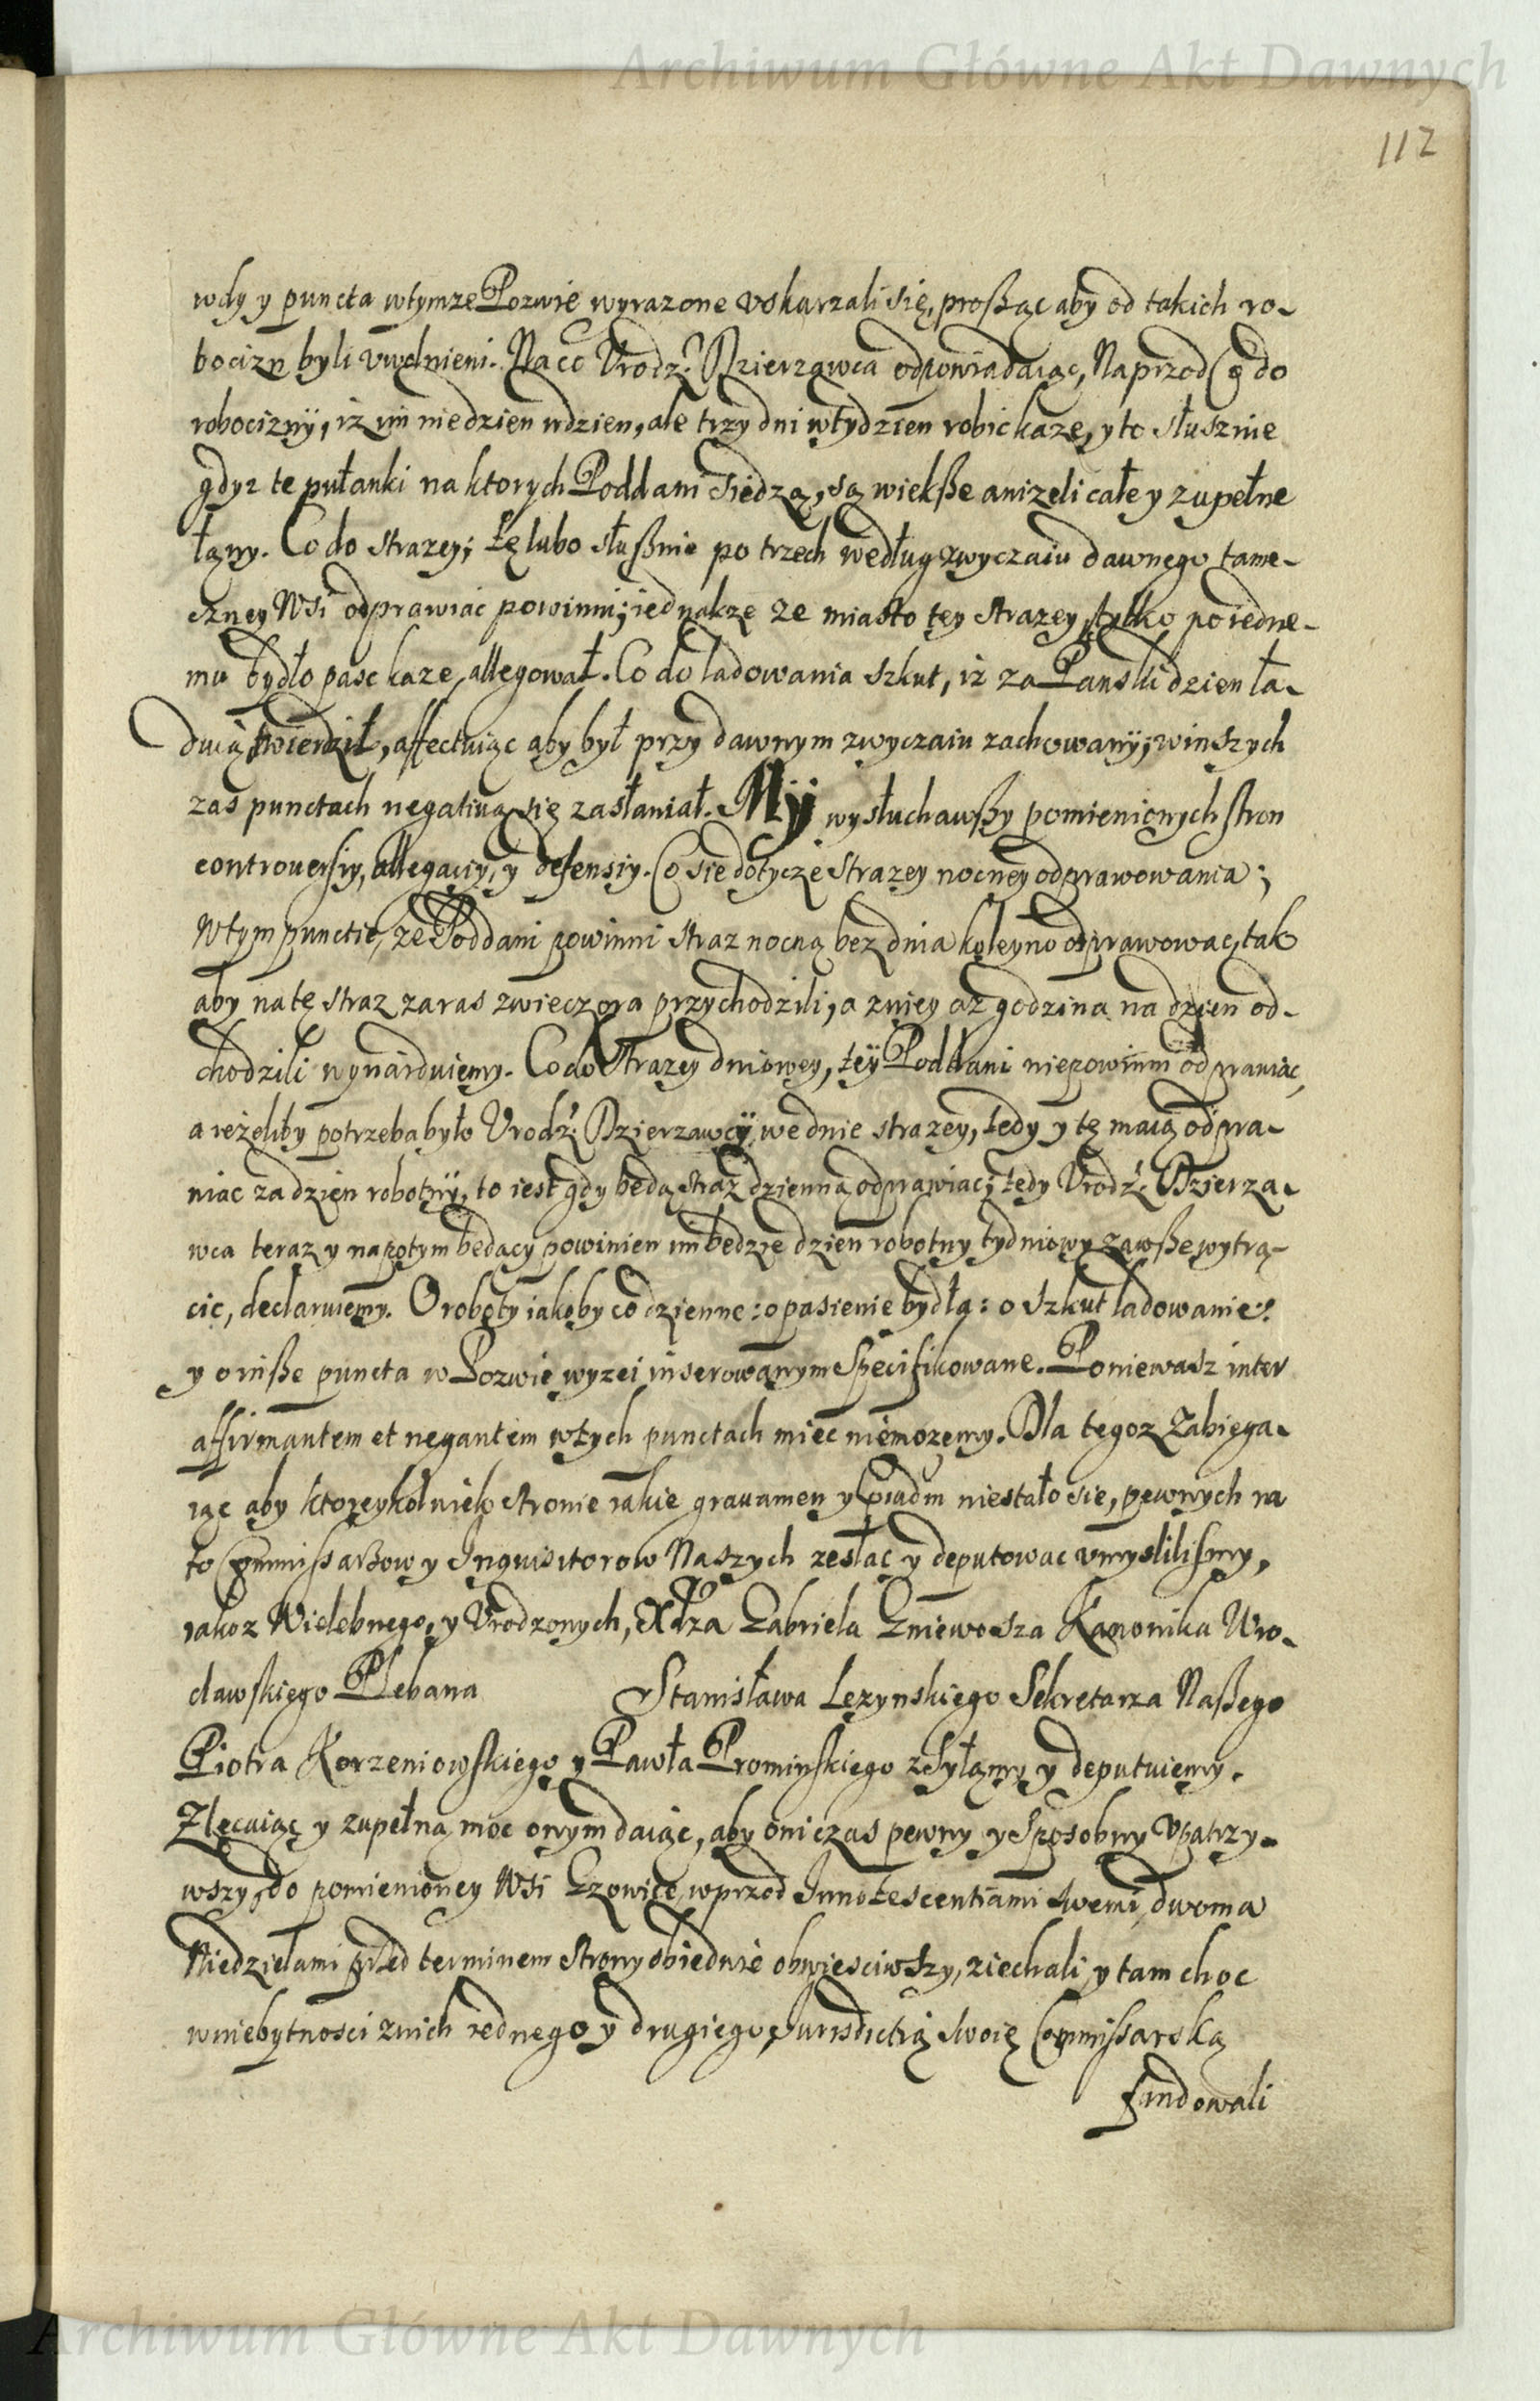 Archiwum Główne Akt Dawnych
112
wdy y puncta wtymze Pozwie wyrazone vskarzali się, proßąc aby od takich ro-
bocizn byli vwolnieni. Na co Vrodz: Dzierzawca odpowiadaiąc, Naprzod Co do
robocizny, iż im nie dzien wdzien, ale trzy dni wtydzien robic kaze, y to słusznie
gdyz te pułanki na ktorych Poddani siedzą, są wiekße anizeli całe y zupełne
łany. Co do strazey; tę lubo słußnie po trzech według zwyczaiu dawnego tame-
czney Wsi odprawiac powinni; iednakze ze miasto tey strazey, tylko po iedne-
mu bydło pasc kaze, allegował. Co do ladowania szkut, iż za Panski dzien ła-
duią twierdził, affectuiąc aby był przy dawnym zwyczaiu zachowany; winszych
zas punctach negatiuą się zasłaniał. My wysłuchawßy pomienionych stron
controuersiy, allegaciy, y defensiy. Co sie dotycze strazey nocney odprawowania;
Wtym punctie, ze Poddani powinni straz nocną bez dnia koleyno odprawowac, tak
aby na tę straz zaras zwieczora przychodzili, a zniey aż godzina na dzien od-
chodzili wynaiduiemy. Co do Strazey dniowey, tey Poddani niepowinni odprawiac,
a ieżeliby potrzeba było Vrodz: Dzierzawcy, we dnie strazey, tedy y tę maią odpra-
wiac za dzien robotny, to iest gdy bedą straż dzienną odprawiac; tedy Vrodz: Dzierza-
wca teraz y napotym bedący powinien im bedzie dzien robotny tydniowy zawße wytrą-
cic, declaruiemy. O roboty iakoby codzienne: o pasienie bydła: o szkut ladowanie:
y o inße puncta w Pozwie wyzei inserowanym specifikowane. Poniewasz inter
affirmantem et negantem wtych punctach miec niemozemy. Dla tegoz zabiega-
iąc aby ktoreykolwiek stronie iakie grauamen y niestało sie, pewnych na
to Commissarzow y Inquisitorow Naszych zesłac y deputowac vmyslilismy,
iakoz Wielebnego, y Vrodzonych, Xdza Gabriela Gniewosza Kanonika Wro-
cławskiego Plebana Stanisława Lezynskiego Sekretarza Naßego
Piotra Korzeniowskiego y Pawła Prominskiego zsyłamy y deputuiemy.
Zlecaiąc y zupełną moc onym daiąc, aby oni czas pewny y sposobny vpatrzy-
wszy, do pomienioney Wsi Gzowice, wprzod Innotescentiami swemi, dwoma
Niedzielami przed terminem strony obiedwie obwiesciwszy, ziechali y tam choc
wniebytnosci znich iednego y drugiego, Iurisdictią swoię Commissarską
fundowali
Archiwum Główne Akt Dawnych